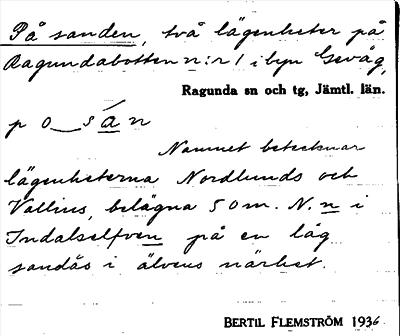 På sanden, två lägenheter på
Ragundabotten n:r 1 i byn Gevåg,
Ragunda sn och tg, Jämtl. län.
p o s á n
Namnet betecknar
lägenheterna Nordlunds och
Vallins, belägna 50 m. N. n i
Indalselfven på en låg
sandås i älvens närhet.
BERTIL FLEMSTRÖM 1936.